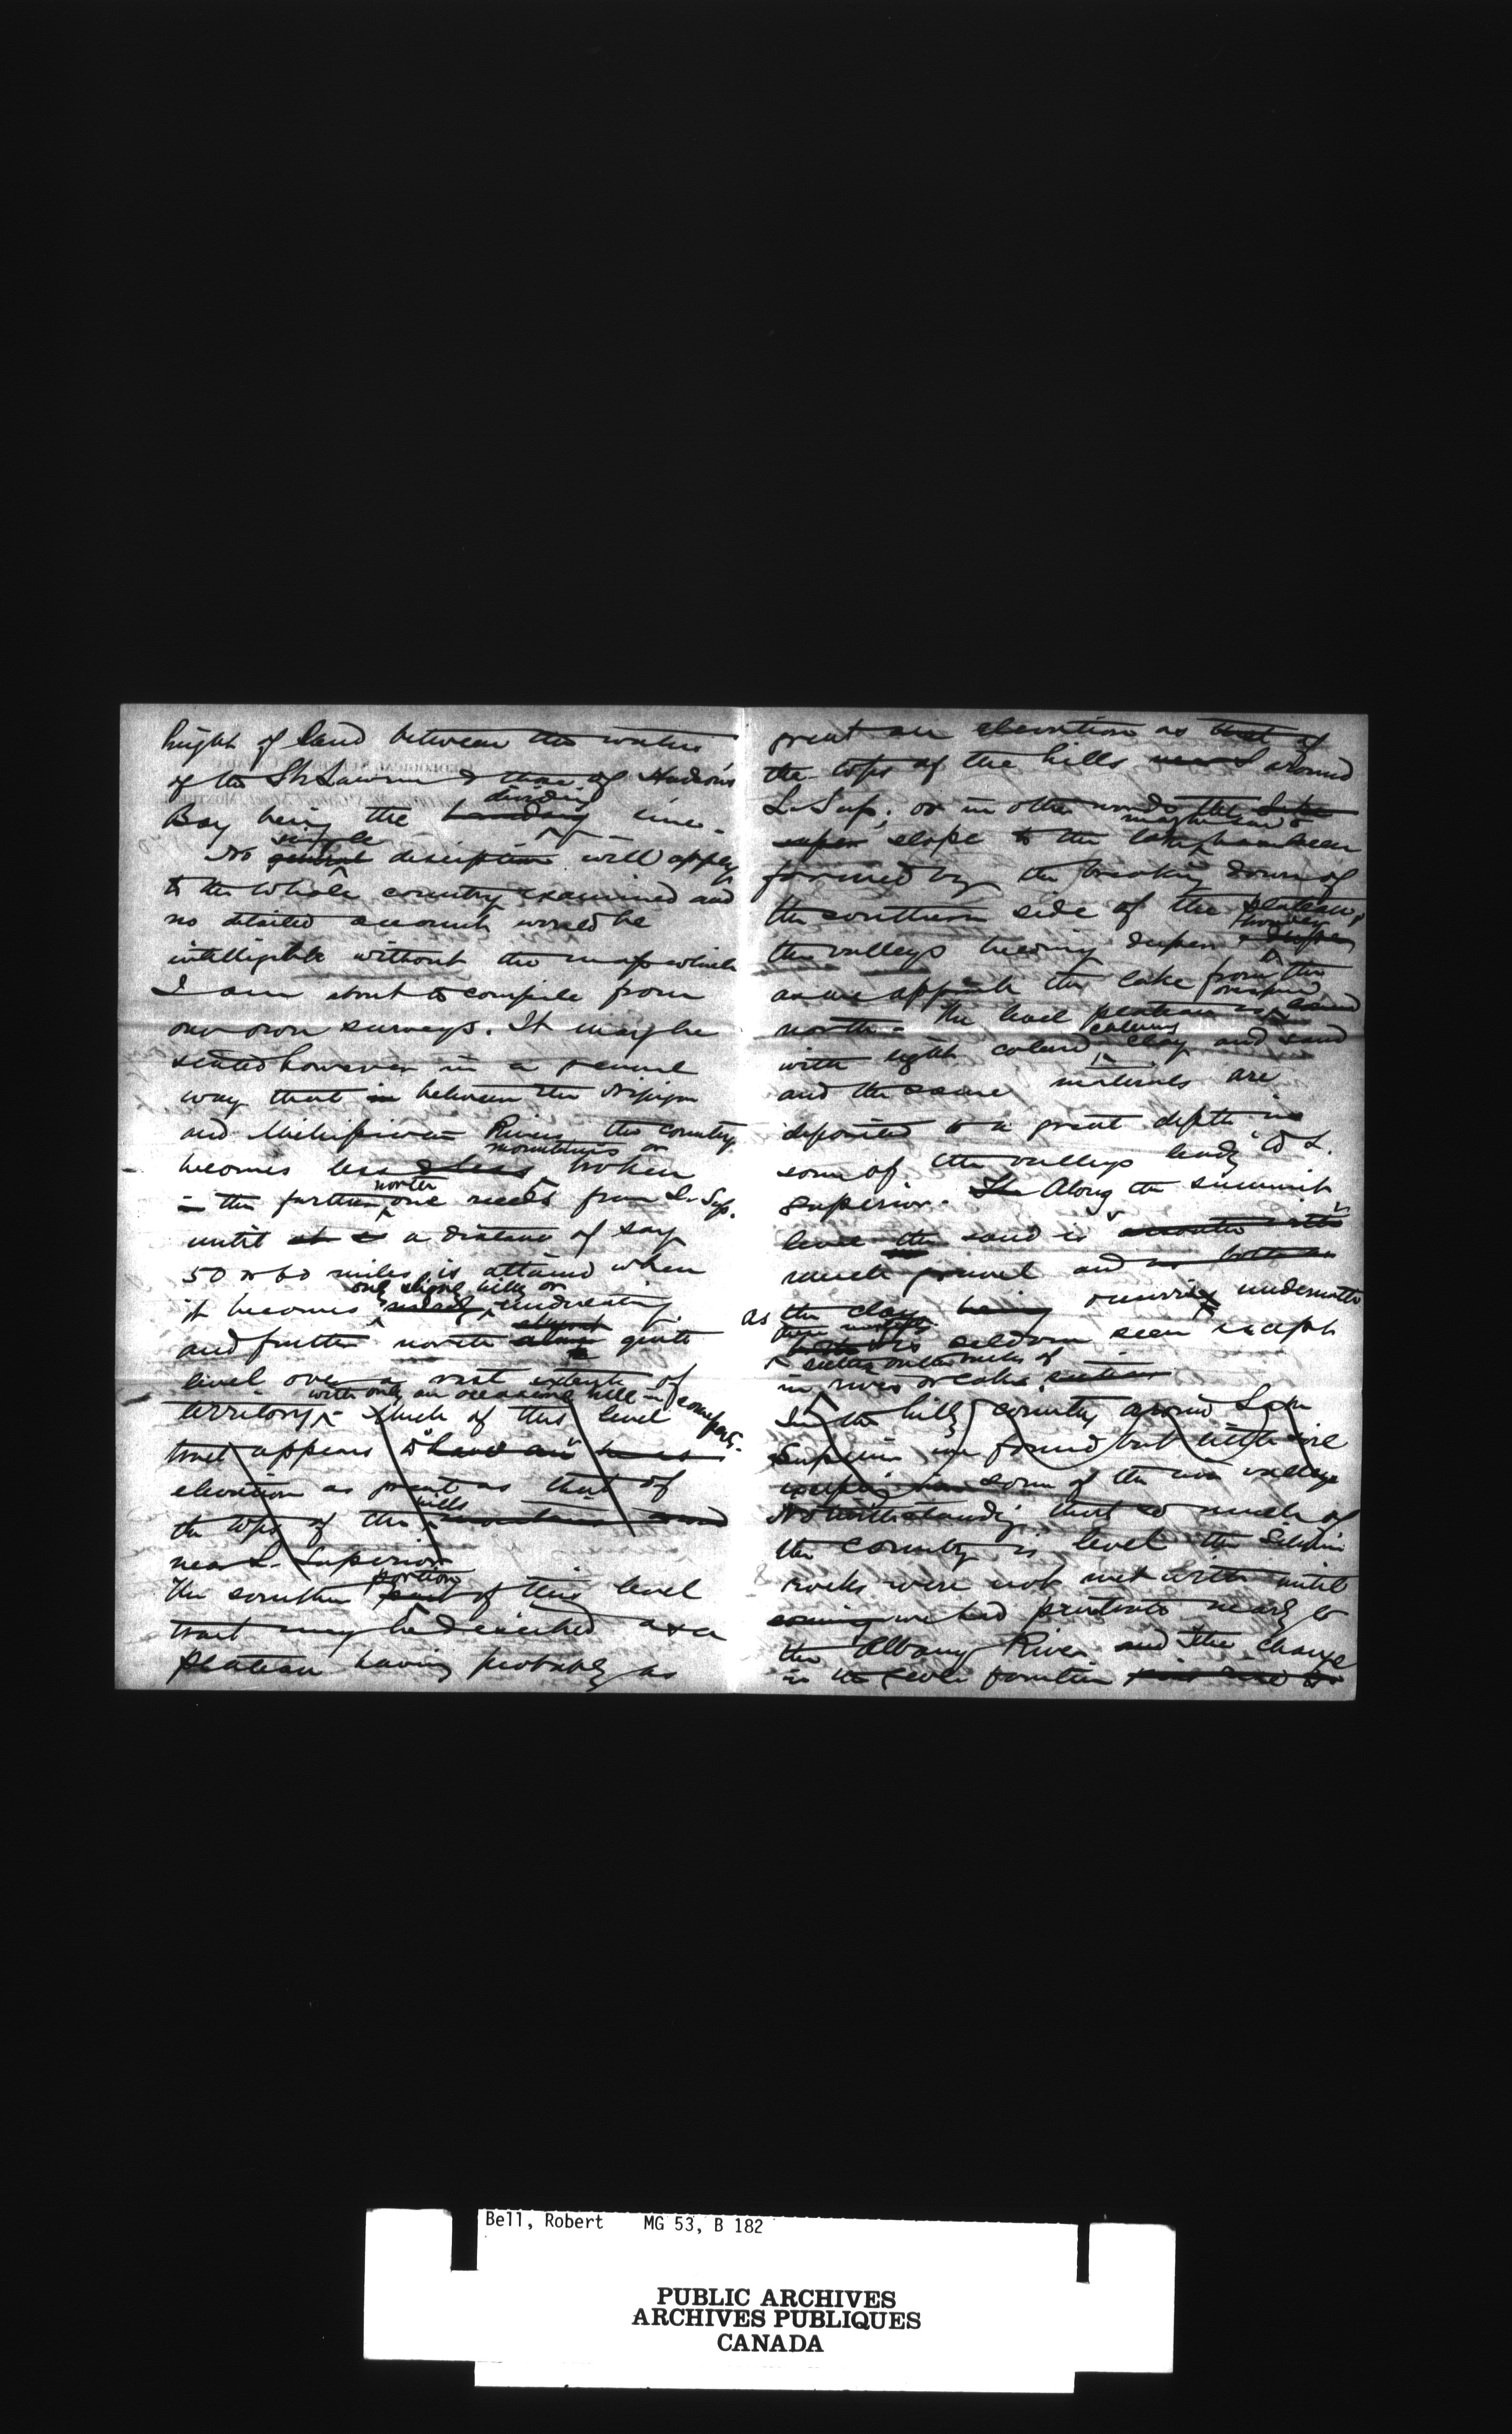 hight of land between the waters
of the St. Lawren & those of Hudson's
dividing
Bay being the line.
single
No general description will apply
to the whole country examined and
no detailed account would be
intelligible without the map which
I am about to compile from
our own surveys. It may be
stated however in a general
way that in between the Nipigon
and Michipicoten Rivers the country
mountainous or
becomes less & less broken
norther
the further one recedes from L. Sup.
until at a a distance of say
50 or 60 miles is attained when
only slight hilly or
it becomes merely undulating
almost
and further north quite
level over a vast extent of
with only an occasional hill in some parts.
territory. Much of this level
tract appears to have an
elevation as great as that of
hills
the tops of the mountains around
near L. Superior
portion
The southern part of this level
tract may be described as a
plateau having probably as
great an elevation as that of
the tops of the hills near L around
L. Sup; or in other words the Lake
super slope to the lake has been
formed by the breaking down of
the southern side of the plateau,
however
the valleys being deeper
as we approach the lake from the
north. The level plateau is
with light colored clay and sand
and the same materials are
deposited to a great depth in
some of the valleys leadg to L.
Superior. The Along the summit
level the sand is
much gravel and
as the clay being occurring underneath
is seldom seen except
on the banks of
in rivers or lakes section
In the hilly country around Lake
Superior is found but little soil
except in some of the river valleys
Notwithstanding that so much of
the country is level the Silurian
rocks were not met with until
coming we had penetrated nearly to
the Albany River and The change
in the formation
Bell, Robert MG 53, B 182
PUBLIC ARCHIVES
ARCHIVES PUBLIQUES
CANADA